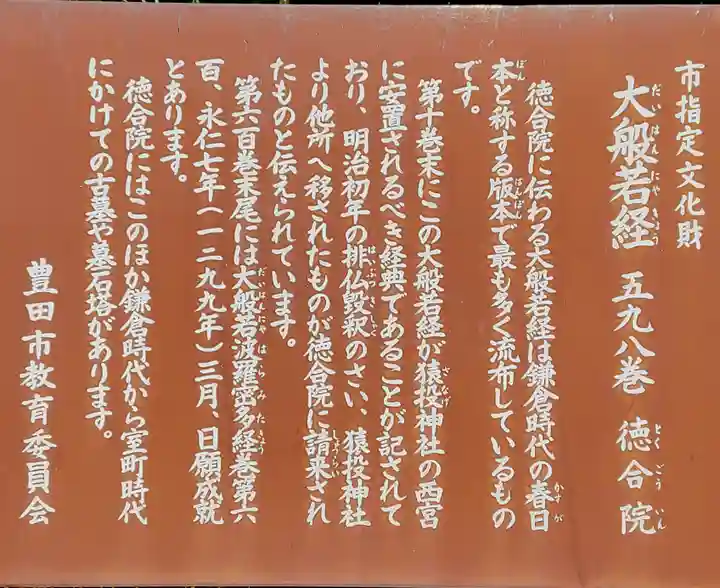 市指定文化財
大般若経 五九八巻 徳合院
だいはんにゃきょう とくごういん
徳合院に伝わる大般若経は鎌倉時代の春日
かすが
本と称する版本で最も多く流布しているもの
ぼん はんぽん
です。
第十巻末にこの大般若経が猿投神社の西宮
さなげ
に安置されるべき経典であることが記されて
おり、明治初年の排仏毀釈のさい、猿投神社
はいぶつきしゃく
より他所へ移されたものが徳合院に請来され
しょうらい
たものと伝えられています。
第六百巻末尾には大般若波羅密多経巻第六
だいはんにゃはらみたきょう
百、永仁七年(一二九九年)三月、日願成就
とあります。
徳合院にはこのほか鎌倉時代から室町時代
にかけての古墓や墓石塔があります。
豊田市教育委員会